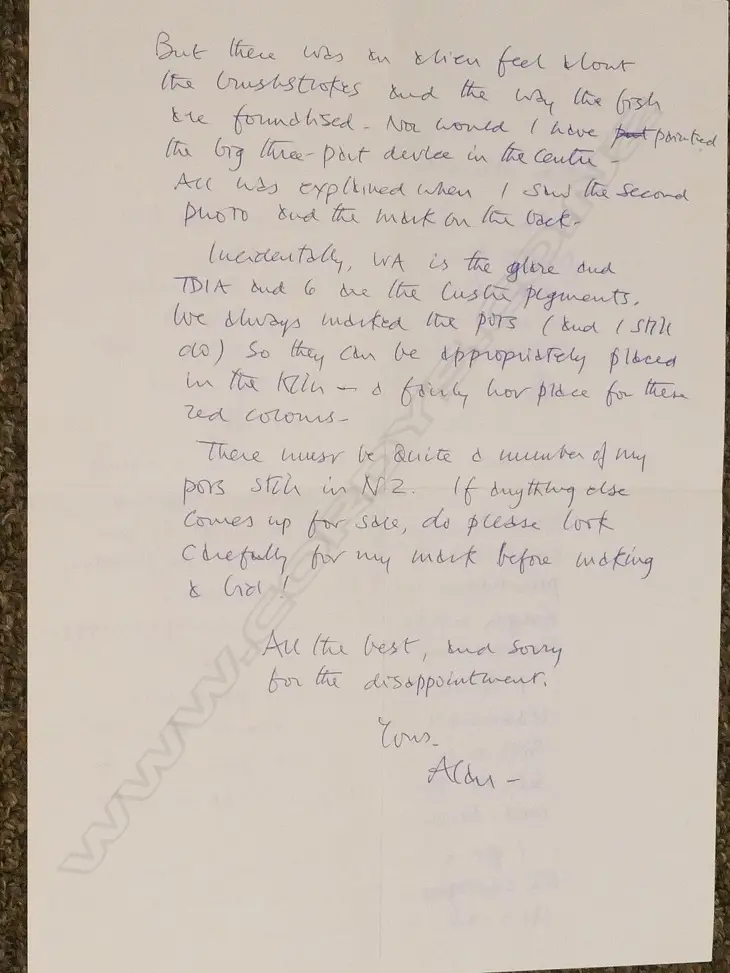 But there was an alien feel about
the brushstrokes and the way the fish
are formalised. Nor would I have put painted
the big three-part device in the centre -
All was explained when I saw the second
photo and the mark on the back -
Incidentally, WA is the glaze and
TDIA and 6 are the lustre pigments.
We always marked the pots (and I still
do) so they can be appropriately placed
in the kiln - a fairly hot place for these
red colours -
There must be quite a number of my
pots still in NZ. If anything else
comes up for sale, do please look
carefully for my mark before making
a bid!
All the best, and sorry
for the disappointment.
Yours -
Alan -